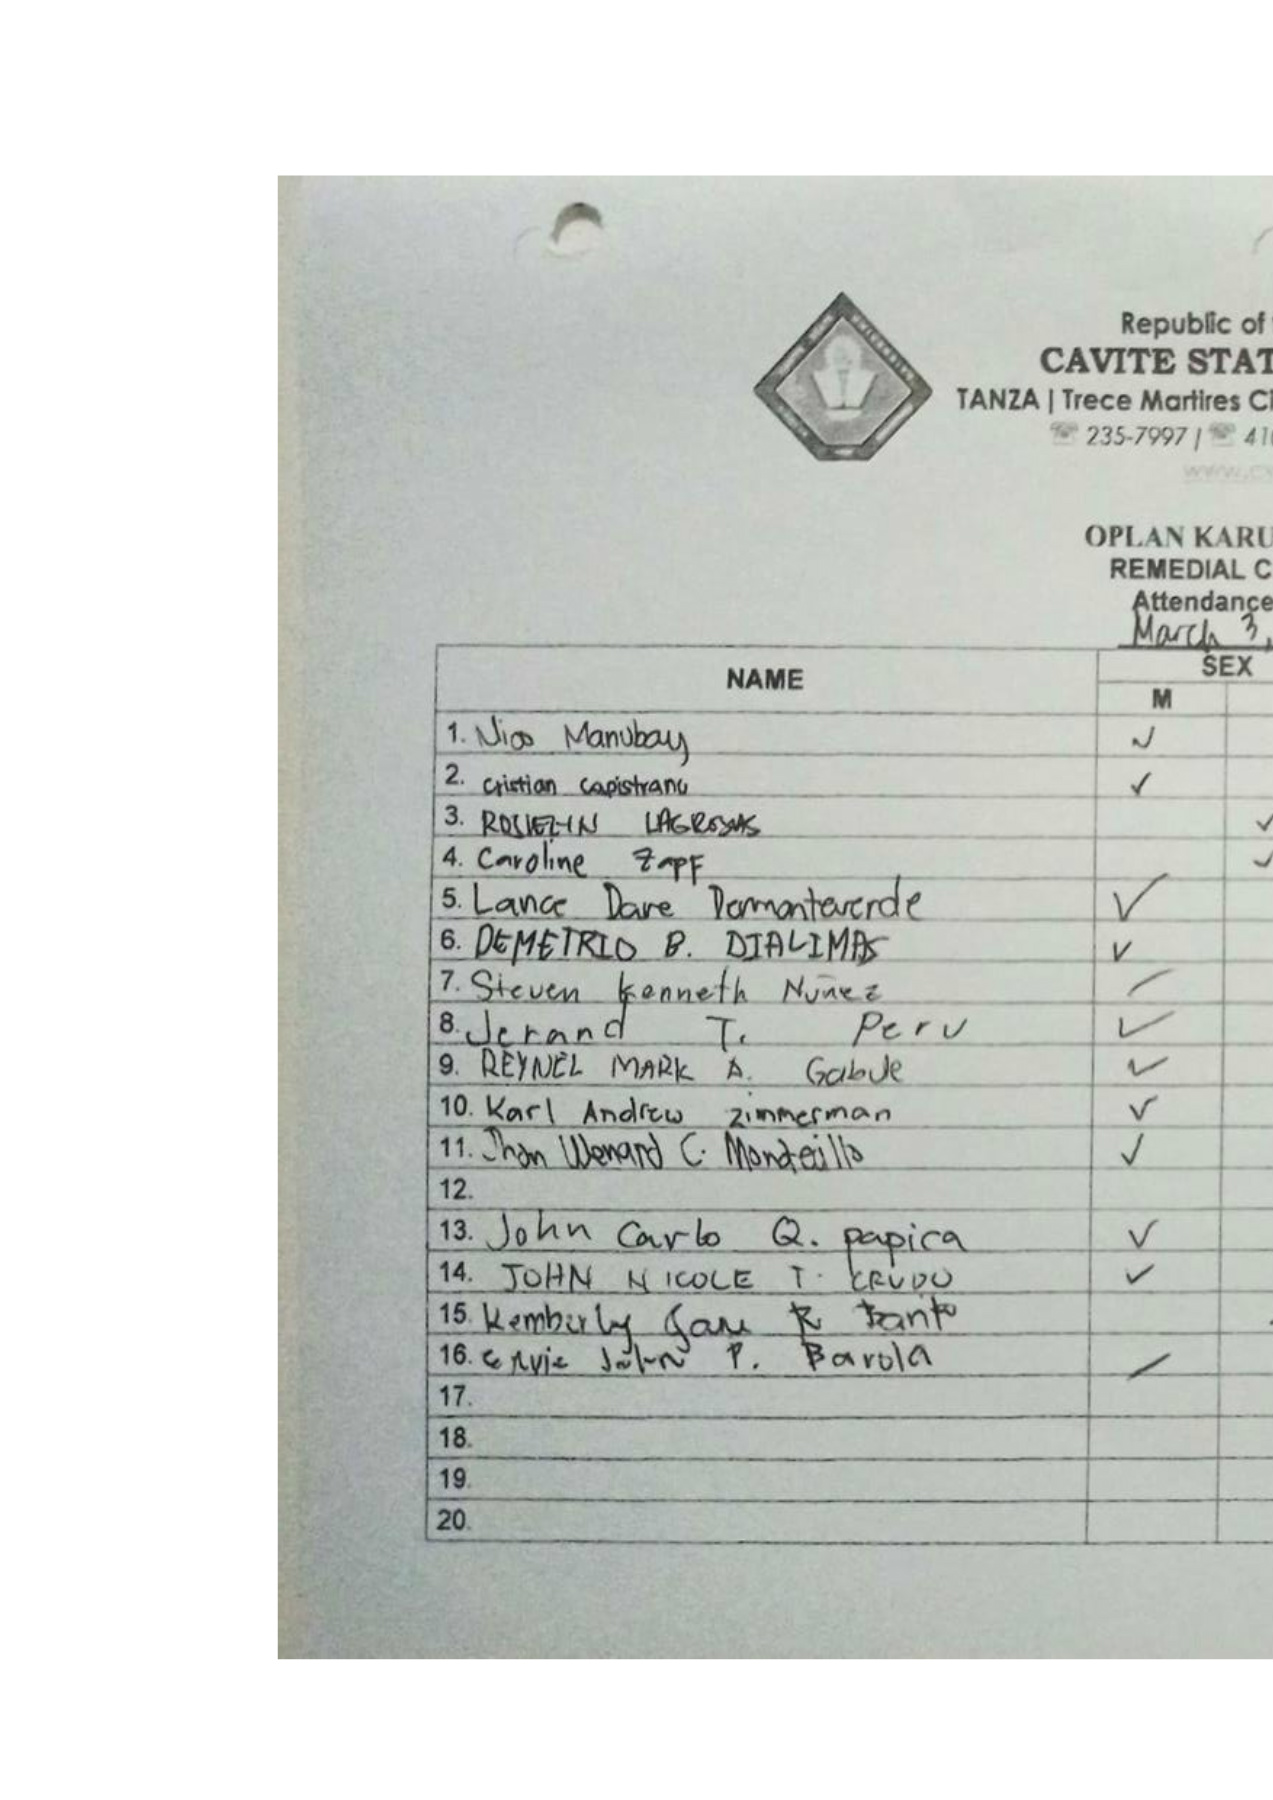 Republic of
CAVITE STAT
TANZA | Trece Martires Ci
235-7997 | 41
OPLAN KARU
REMEDIAL C
Attendance
March 3,
NAME SEX
M
1. Nico Manubay
2. Cristian Capistrano
3. LAGROSAS
4. Caroline Zapf
5. Lance Dave Demonteverde
6. DEMETRIO B. DIALIMAS
7. Steven Kenneth Nuñez
8. Jerand T. Peru
9. REYNEL MARK A. Gabule
10. Karl Andrew Zimmerman
11. Jhon Wenard C.
12.
13. John Carlo Q. papica
14. JOHN NICOLE T. CRUDO
15. Kemberly Jane R
16. John P. Barola
17.
18.
19.
20.